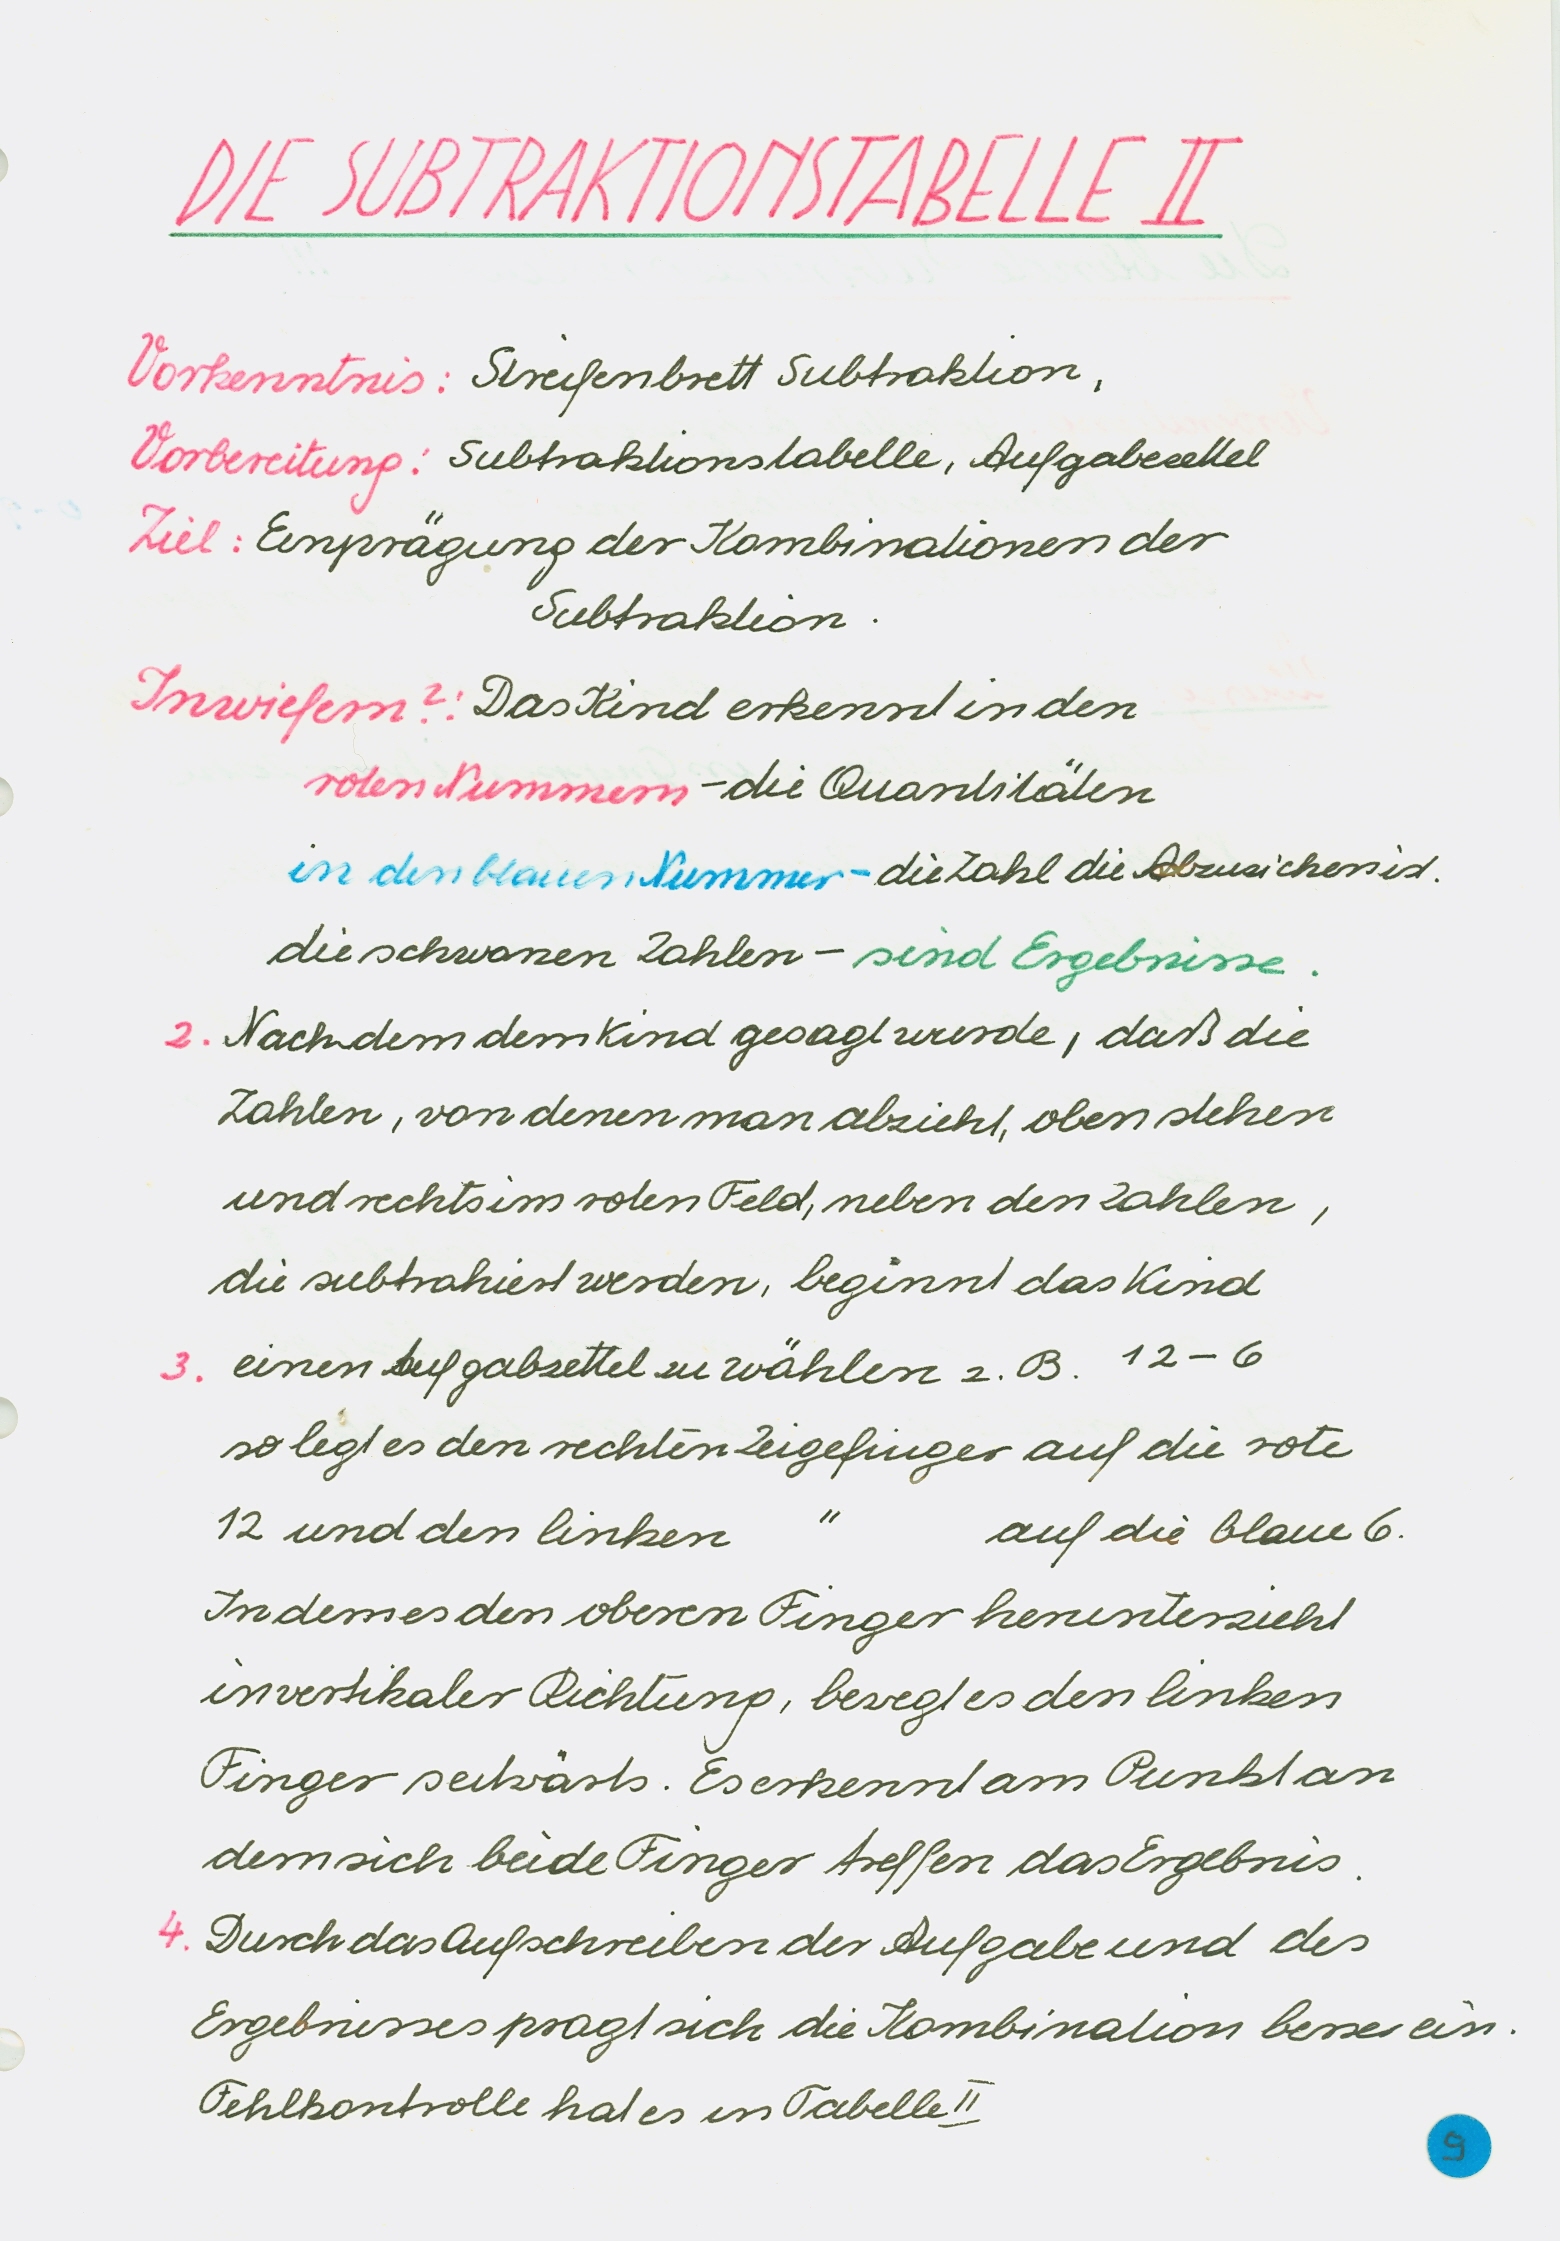 DIE SUBTRAKTIONSTABELLE II
Vorkenntnis: Streifenbrett Subtraktion,
Vorbereitung: Subtraktionstabelle, Aufgabezettel
Ziel: Einprägung der Kombinationen der
Subtraktion.
Inwiefern?: Das Kind erkennt in den
roten Nummern - die Quantitäten
in den blauen Nummer - die Zahl die Abzuziehen ist.
die schwarzen Zahlen - sind Ergebnisse.
2. Nachdem dem Kind gesagt wurde, daß die
Zahlen, von denen man abzieht, oben stehen
und rechts im roten Feld, neben den Zahlen,
die subtrahiert werden, beginnt das Kind
3. einen Aufgabzettel zu wählen z. B. 12 - 6
so legt es den rechten Zeigefinger auf die rote
12 und den linken " auf die blaue 6.
Indem es den oberen Finger herunterzieht
in vertikaler Richtung, bewegt es den linken
Finger seitwärts. Es erkennt am Punkt an
dem sich beide Finger treffen das Ergebnis.
4. Durch das Aufschreiben der Aufgabe und des
Ergebnisses pragt sich die Kombination besser ein.
Fehlkontrolle hat es in Tabelle II
9